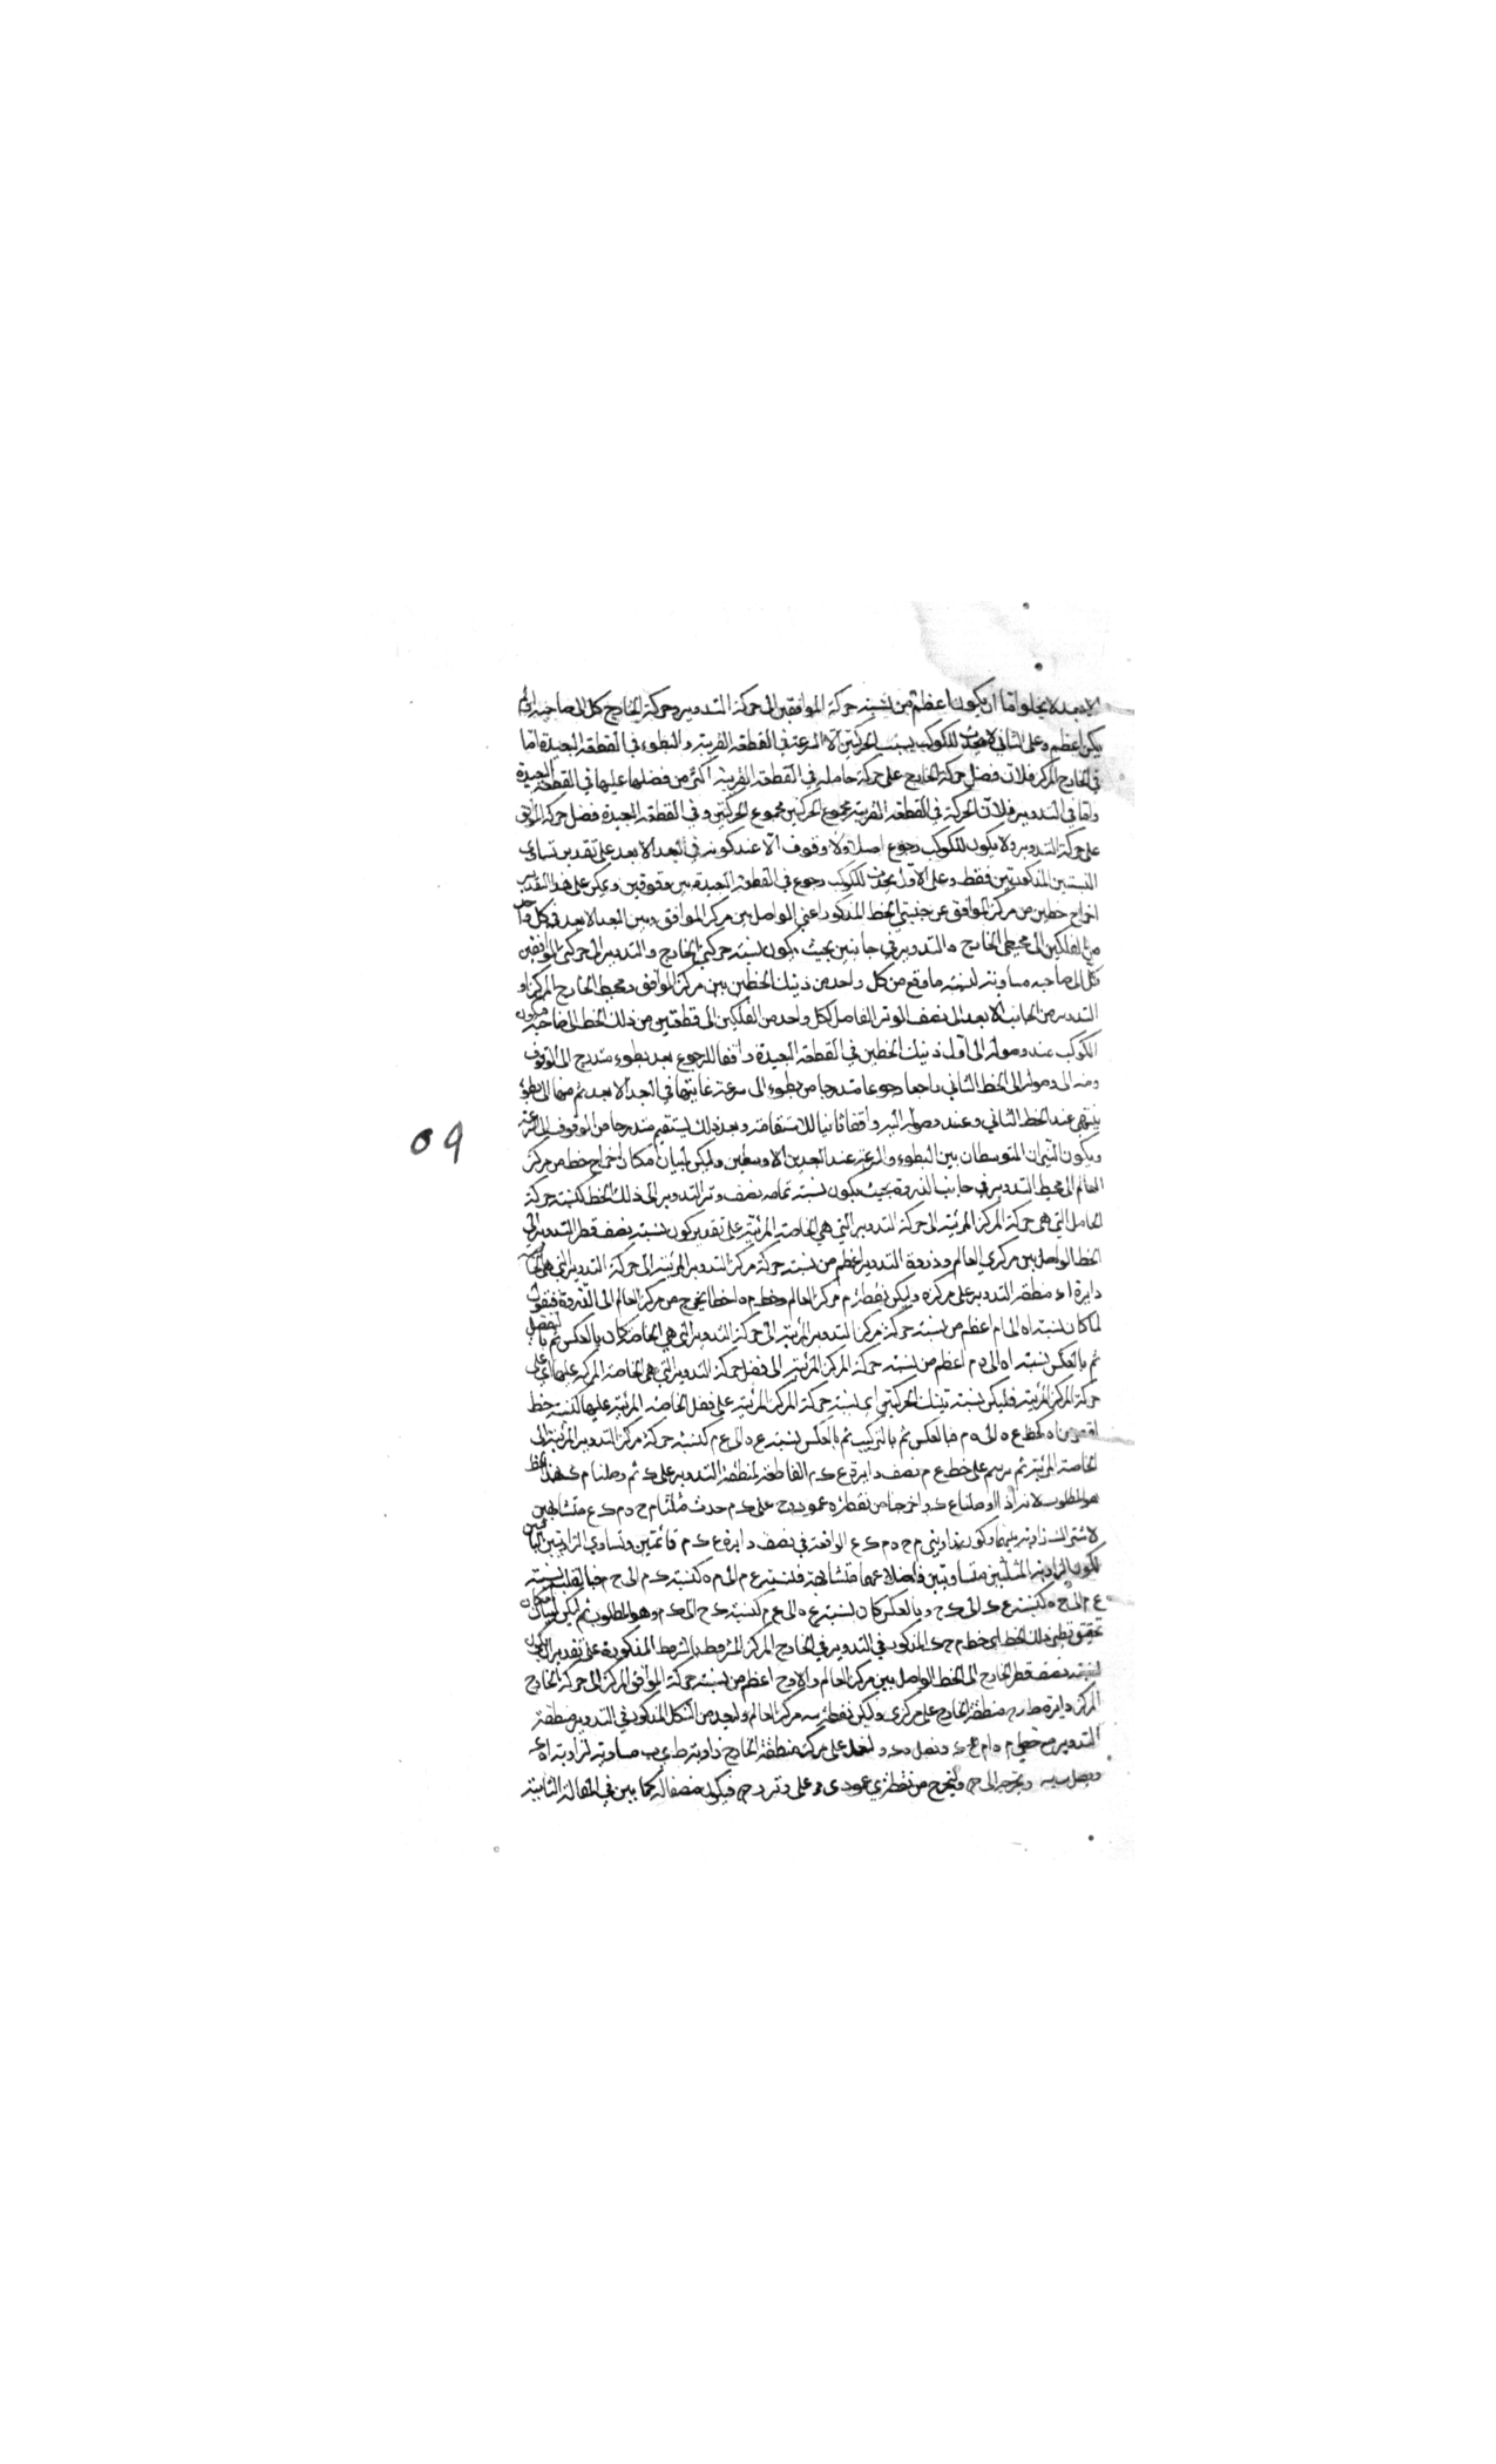 الابعد لا يخلو اما ان يكون اعظم من نسبة حركة الموافقين الى حركة التدوير وحركة الخارج كل الى صاحبه او لم
يكن اعظم وعلى الثاني لا يحدث للكوكب بسبب الحركتين الا السرعة في القطعة القريبة والبطوء في القطعة البعيدة اما
في الخارج المركز فلان فضل حركة الخارج على حركة حامله في القطعة القريبة اكثر من فضلها عليها في القطعة البعيدة
واما في التدوير فلان الحركة في القطعة القريبة مجموع الحركتين مجموع الحركتين وفي القطعة البعيدة فضل حركة الموافق
على حركة التدوير ولا يكون للكوكب رجوع اصلا ولا وقوف الا عند كونه في البعد الابعد على تقدير تساوى
النسبتين المذكورتين فقط وعلى الاول يحدث للكوكب رجوع في القطعة البعيدة بين وقوفين ويمكن على هذا التقدير
اخراج خطين من مركز الموافق عن جنبتي الخط المذكور اعني الواصل بين مركز الموافق وبين البعد الابعد في كل واحد
من الفلكين الى محيطي الخارج والتدوير في جانبين بحيث يكون نسبة حركتي الخارج والتدوير الى حركتي الموافقين
كل الى صاحبه مساوية لنسبة ما وقع من كل واحد من ذينك الخطين بين مركز الموافق ومحيط الخارج المركز او
التدوير من الجانب الابعد الى نصف الوتر الفاصل لكل واحد من الفلكين الى قطعتين من ذلك الخط الى صاحبه فيكون
الكوكب عند وصوله الى اول ذينك الخطين في القطعة البعيدة واقفا للرجوع بعد بطوء متدرج الى الوقوف
ومنه الى وصوله الى الخط الثاني راجعا رجوعا متدرجا من بطوء الى سرعة غايتها في البعد الابعد ثم منها الى بطوء
ينتهي عند الخط الثاني وعند وصوله اليه واقفا ثانيا للاستقامة وبعد ذلك يستقيم متدرجا من الوقوف الى السرعة
ويكون السيران المتوسطان بين البطوء والسرعة عند البعدين الاوسطين وليكن لبيان امكان اخراج خط من مركز
العالم الى محيط التدوير في جانب الذروة بحيث يكون نسبة تمامه نصف وتر التدوير الى ذلك الخط كنسبة حركة
الحامل التي هي حركة المركز المرئية الى حركة التدوير التي هي الخاصة المرئية على تقدير كون نسبة نصف قطر التدوير الى
الخط الواصل بين مركزي العالم وذروة التدوير اعظم من نسبة حركة مركز التدوير المرئية الى حركة التدوير التي هي الخاصة
دايرة ا منطقة التدوير على مركز ه وليكن نقطة م مركز العالم وخط م ه ا خطا يخرج من مركز العالم الى الذروة فنقول
لما كان نسبة ا ه الى ا م اعظم من نسبة حركة مركز التدوير المرئية الى حركة التدوير التي هي الخاصة كان بالعكس ثم بالتفصيل
ثم بالعكس نسبة ا ه الى ه م اعظم من نسبة حركة المركز المرئية الى فضل حركة التدوير التي هي الخاصة المركبة عليها اي على
حركة المركز المرئية فليكن نسبة تينك الحركتين اي نسبة حركة المركز المرئية على فضل الخاصة المرئية عليها كنسبة خط
اقصر من ا ه كخط ع ه الى ه م فبالعكس ثم بالتركيب ثم بالعكس نسبة ع ه الى ع م كنسبة حركة مركز التدوير المرئية الى
الخاصة المرئية ثم نرسم على خط ع م نصف دايرة ع ك م القاطعة لمنطقة التدوير على ك ثم وصلنا م ك هذا الخط
هو المطلوب لانه اذا وصلنا ع ك واخرجنا من نقطة ه عمود ه ح على ك م حدث مثلثا م ح ه م ك ع متشابهين
لاشتراك زاوية بينهما وكون زاويتي م ح ه م ك ع الواقعة في نصف دايرة ع ك م قائمتين وتساوي الزاويتين الباقيتين
لكون الزاوية المثلثين متساويتين فاضلاعهما متشابهة فنسبة ع م الى م ه كنسبة ك م الى م ح فبالقلب نسبة
ع م الى ع ه كنسبة ك م الى ك ح وبالعكس كان نسبة ع ه الى ع م كنسبة ك ح الى ك م وهو المطلوب ثم ليكن لبيان امكان
تحقيق نظير ذلك الخط اي خط م ح ك المذكور في التدوير في الخارج المركز المشروط بالشرط المذكورة على تقدير ان يكون
نسبة نصف قطر الخارج الى الخط الواصل بين مركز العالم والاوج اعظم من نسبة حركة الموافق المركز الى حركة الخارج
المركز دايرة منطقة الخارج على مركز ي وليكن نقطة س مركز العالم ولنعد من الشكل المذكور في التدوير منطقة
التدوير مع خطي ونصل ولنعمل على مركز منطقة الخارج زاوية ط ي ب مساوية لزاوية
ونصل ونخرجه الى ح وليخرج من نقطة ي عمود على وتر فيكون منصفا له كما بين في المقالة الثالثة
٥٩